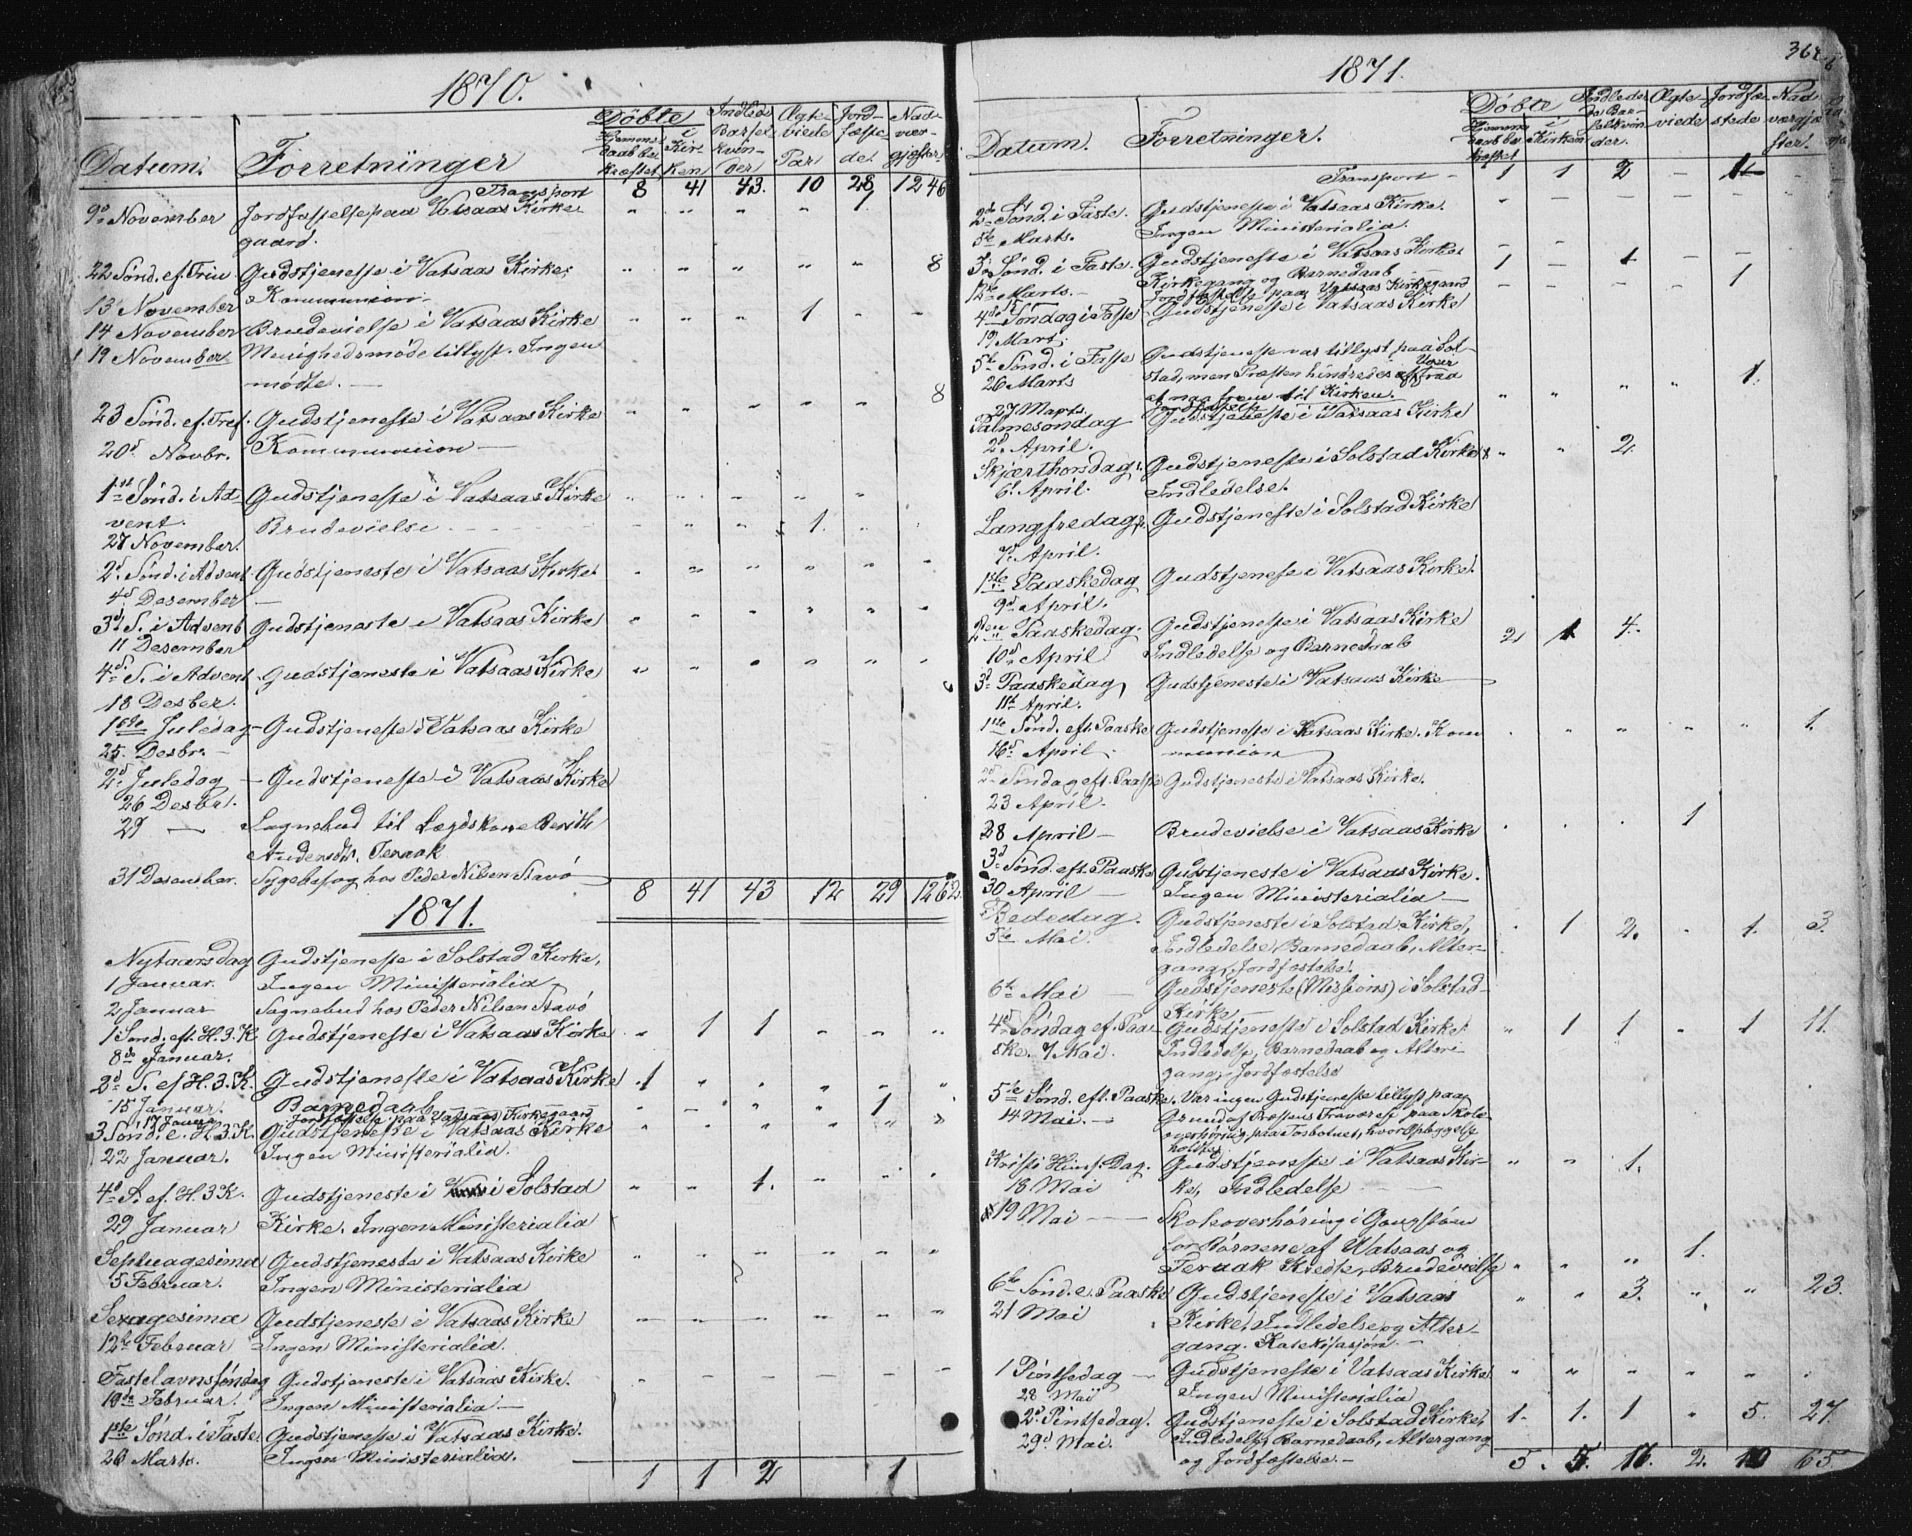 1870.
Datum. Forretninger Döbte Hjemmedaab bekræftet i Kirken Indlede Barselkvinder Ægteviede Par Jordfæstede Nadvergjæster
Transport 8 41 43. 10 28 1246
9d November Jordfæstelse paa Vatsaas Kirke-
gaard.
22 Sönd. ef. Trin. Gudstjeneste i Vatsaas Kirke; 8
13 November Kommunion.
14 November Brudevielse i Vatsaas Kirke 1
19 November Menighedsmöde tillyst. Ingen
mödte. —
23 Sönd. ef. Tref. Gudstjeneste i Vatsaas Kirke 8
20d Novbr. Kommunion —
1ste Sönd. i Ad- Gudstjeneste i Vatsaas Kirke
vent. Brudevielse 1.
27 November.
2d Sönd. i Advent Gudstjeneste i Vatsaas Kirke.
4d Desember —
3d S. i Advent Gudstjeneste i Vatsaas Kirke
11 Desember
4d S. i Advent Gudstjeneste i Vatsaas Kirke
18 Desber.
1ste Juledag — Gudstjeneste i Vatsaas Kirke
25. Desbr. —
2d Juledag — Gudstjeneste i Vatsaas Kirke
26 Desbr.
29 — Sognebud til Lægdskone Berith
Andersdtr. Teraak
31 Desember. Sygebesög hos Peder Nilsen Stavö
8 41 43 12 29 1262.
1871.
Nytaarsdag Gudstjeneste i Solstad Kirke,
1 Januar. Ingen Ministerialia
2 Januar Sognebud hos Peder Nilsen Stavö
1 Sönd. eft. H. 3. K. Gudstjeneste i Vatsaas Kirke 1 1
8de Januar.
2d S. ef H. 3. K. Gudstjeneste i Vatsaas Kirke 1
15 Januar. Barnedaab
17 Januar Jordfæstelse paa Vatsaas Kirkegaard 1
3 Sönd. e. H. 3. K. Gudstjeneste i Vatsaas Kirke
22 Januar. Ingen Ministerialia.
4d S. ef. H. 3 K. Gudstjeneste i Solstad 1.
29 Januar Kirke. Ingen Ministerialia
Septuagesima Gudstjeneste i Vatsaas Kirke
5 Februar. Ingen Ministerialia
Sexagesima Gudstjeneste i Vatsaas Kirke
12te Februar Ingen Ministerialia.
Fastelavnssöndag Gudstjeneste i Vatsaas Kirke.
19de Februar. Ingen Ministerialia. —
1ste Sönd. i Faste. Gudstjeneste i Vatsaas Kirke.
26 Marts. Ingen Ministerialia.
1 1 2 1
1871.
Datum. Forretninger. Döbte Hjemmedaab bekræftet i Kirken Indlede Barselkvinder. Ægteviede Jordfæstede Nadvergjæster.
Transport — 1 1 2 - 1 -
2d Sönd. i Faste. Gudstjeneste i Vatsaas Kirke.
5te Marts. Ingen Ministerialia.
3d Sönd. i Faste. Gudstjeneste i Vatsaas Kirke. 1 - 1
12te Marts. — Kirkegang og Barnedaab
Jordfæstelse paa Vatsaas Kirkegaard 1
4de Söndag i Faste Gudstjeneste i Vatsaas Kirke
19 Mart.
5te Sönd. i Faste Gudstjeneste var tillyst paa Sol-
26 Marts stad, men Præsten hindredes af
at naa frem til Kirken.
27 Marts. Jordfæstelse 1.
Palmesöndag Gudstjeneste i Vatsaas Kirke
2d April.
Skjærthorsdag. Gudstjeneste i Solstad Kirke 2.
6. April. Indledelse.
Langfredag. Gudstjeneste i Solstad Kirke
7. April.
1ste Paaskedag Gudstjeneste i Vatsaas Kirke.
9d April.
2den Paaskedag. Gudstjeneste i Vatsaas Kirke 2 1 4.
10d April Indledelse og Barnedaab
3d Paaskedag Gudstjeneste i Vatsaas Kirke
11te April.
1ste Sönd. eft. Paaske Gudstjeneste i Vatsaas Kirke. Kom 1.
16d April munion
2d Söndag eft. Paaske Gudstjeneste i Vatsaas Kirke.
23 April.
28 April — Brudevielse i Vatsaas Kirke 1
3d Sönd. eft. Paaske Gudstjeneste i Vatsaas Kirke.
30 April — Ingen Ministerialia —
Bededag. Gudstjeneste i Solstad Kirke, 1 2. 1. 3.
5te Mai. Indledelse, Barnedaab, Alter-
gang, Jordfæstelse.
6te Mai — Gudstjeneste (Missions) i Solstad-
Kirke —
4d Söndag ef. Paa- Gudstjeneste i Solstad Kirke. 1 1 1 11.
ske. 7 Mai. Indledelse, Barnedaab og Alter-
gang, Jordfæstelse
5te Sönd. eft. Paaske. Var ingen Gudstjeneste tillyst paa
14 Mai. — Grund af Præstens Fravær paa Skole-
overhöring paa Fosbotnet, hvor Opbyggelse
holdtes
Kristi Himf. Dag. Gudstjeneste i Vatsaas Kir- 1.
18 Mai ke, Indledelse
19 Mai — Skoleoverhöring i
for Börnene af Vatsaas og
Teraak Kreds, Brudevielse 1.
6te Sönd. e. Paaske Gudstjeneste i Vatsaas 3. 23.
21 Mai Kirke, Indledelse og Alter-
gang. Katekisasjon. —
1 Pintsedag — Gudstjeneste i Vatsaas Kirke
28 Mai Ingen Ministerialia
2d Pintsedag. Gudstjeneste i Solstad Kirke, 1. 1. 1 5. 27.
29d Mai. Indledelse, Barnedaab, Altergang
og Jordfæstelse. —
5. 5. 16. 2. 10 65.